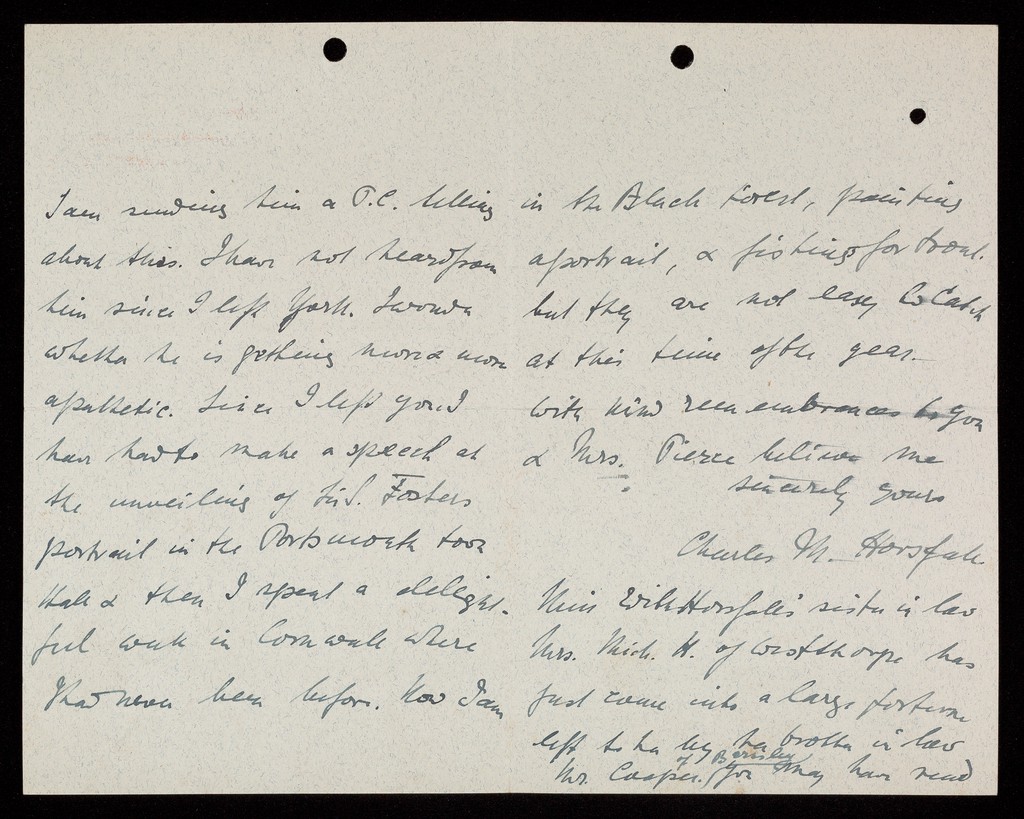 I am sending him a P.C. telling
about this. I have not heard from
him since I left York. I wonder
whether he is getting more & more
apathetic. Since I left you I
have had to make a speech at
the unveiling of Sir S. Fosters
portrait in the Portsmouth town
Hall & then I spent a delight-
ful week in Cornwall where
I had never been before. Now I am
in the Black Forest, painting
a portrait, & fishing for trout.
but they are not easy to catch
at this time of the year.
With kind remembrances to you
& Mrs. Pierce believe me
sincerely yours
Charles M. Horsfall
Horsfall's sister in law
Mrs. Mich. H. of Westthorpe has
just come into a large fortune
left to her by her brother in law
Mr. Cooper. of Bernisley (You may have read